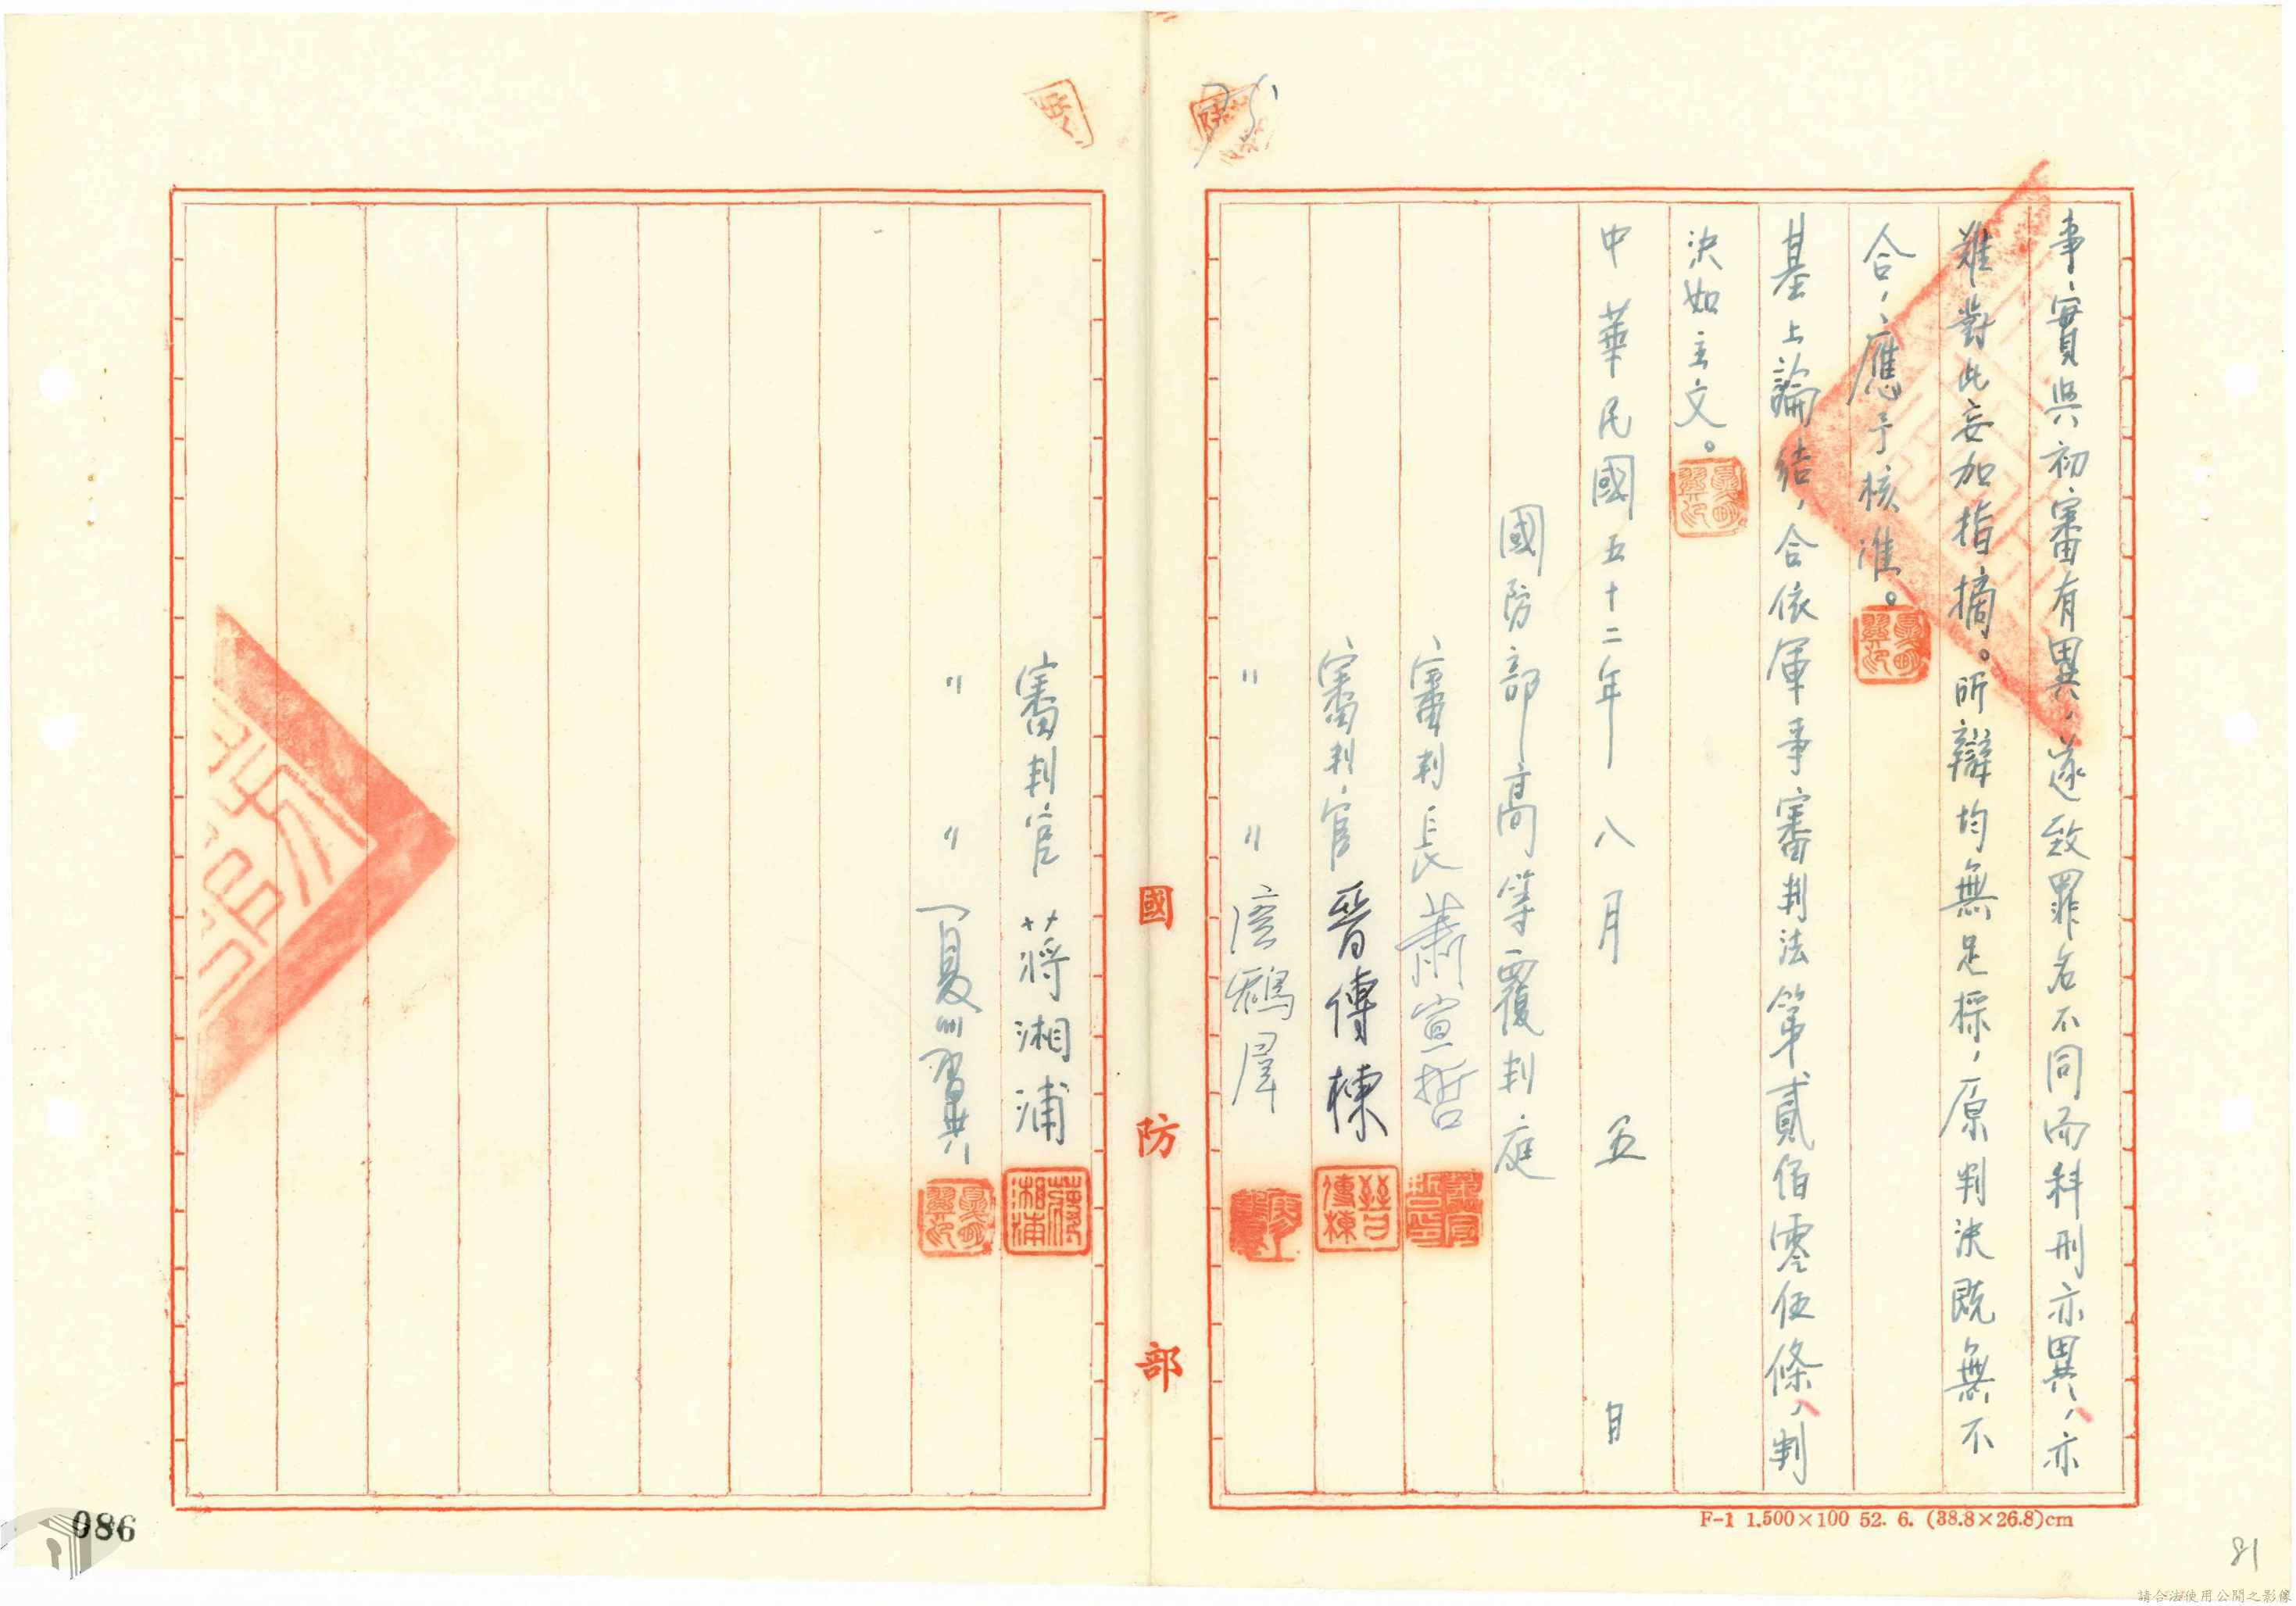 事實與初審有異，遂致罪名不同而科刑亦異，亦
難對此妄加指摘。所辯均無足採，原判決既無不
合，應予核准。
基上論結，合依軍事審判法第貳佰零伍條，判
決如主文。
中華民國五十二年八月五日
國防部高等覆判庭
審判長蕭宣哲
審判官晉傳棟
〃〃鶴
審判官蔣湘浦
〃〃夏翼
國防部
F-1 1.500×100 52. 6. (38.8×26.8)cm
086
81
請合法使用公開之影像